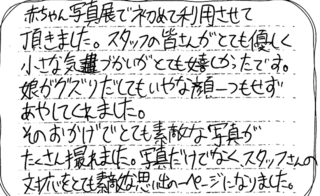 赤ちゃん写真展で初めて利用させて
頂きました。スタッフの皆さんがとても優しく
小さな気遣づかいがとても嬉しかったです。
娘がグズリだしてもいやな顔一つもせず
あやしてくれました。
そのおかげでとても素敵な写真が
たくさん撮れました。写真だけでなくスタッフさんの
対応をとても素敵な思い出の一ページになりました。